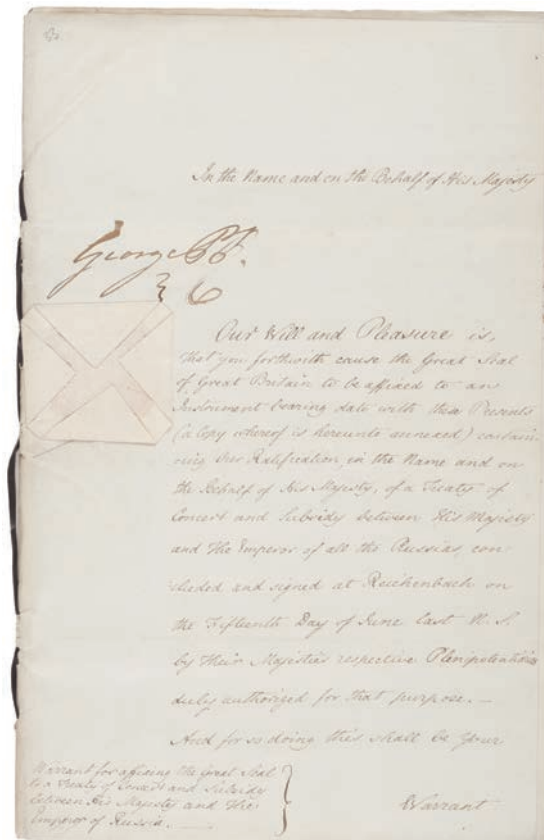 In the Name and on the Behalf of His Majesty
George PR.
Our Will and Pleasure is,
that you forthwith cause the Great Seal
of Great Britain to be affixed to an
Instrument bearing date with these Presents
(a Copy whereof is hereunto annexed) contain-
ning Our Ratification, in the Name and on
the Behalf of His Majesty, of a Treaty of
Concert and Subsidy between His Majesty
and The Emperor of all the Russias, con-
cluded and signed at Reichenbach on
the Fifteenth Day of June last N. S.
by Their Majesties respective Plenipotentiaries
duly authorized for that purpose. —
And for so doing this shall be your
Warrant
Warrant for affixing the Great Seal
to a Treaty of Concert and Subsidy
between His Majesty and The
Emperor of Russia. —